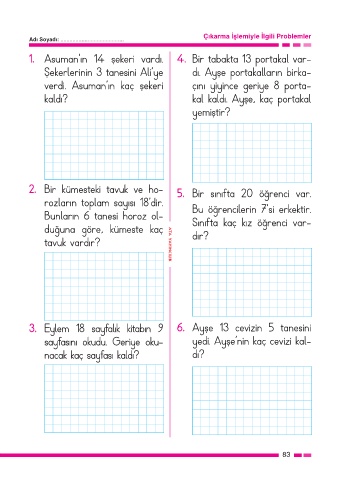 Adı Soyadı: ..............................
Çıkarma İşlemiyle İlgili Problemler
1. Asuman'ın 14 şekeri vardı.
Şekerlerinin 3 tanesini Ali'ye
verdi. Asuman'ın kaç şekeri
kaldı?
2. Bir kümesteki tavuk ve ho-
rozların toplam sayısı 18'dir.
Bunların 6 tanesi horoz ol-
duğuna göre, kümeste kaç
tavuk vardır?
3. Eylem 18 sayfalık kitabın 9
sayfasını okudu. Geriye oku-
nacak kaç sayfası kaldı?
4. Bir tabakta 13 portakal var-
dı. Ayşe portakalların birka-
çını yiyince geriye 8 porta-
kal kaldı. Ayşe, kaç portakal
yemiştir?
5. Bir sınıfta 20 öğrenci var.
Bu öğrencilerin 7'si erkektir.
Sınıfta kaç kız öğrenci var-
dır?
6. Ayşe 13 cevizin 5 tanesini
yedi. Ayşe'nin kaç cevizi kal-
dı?
83